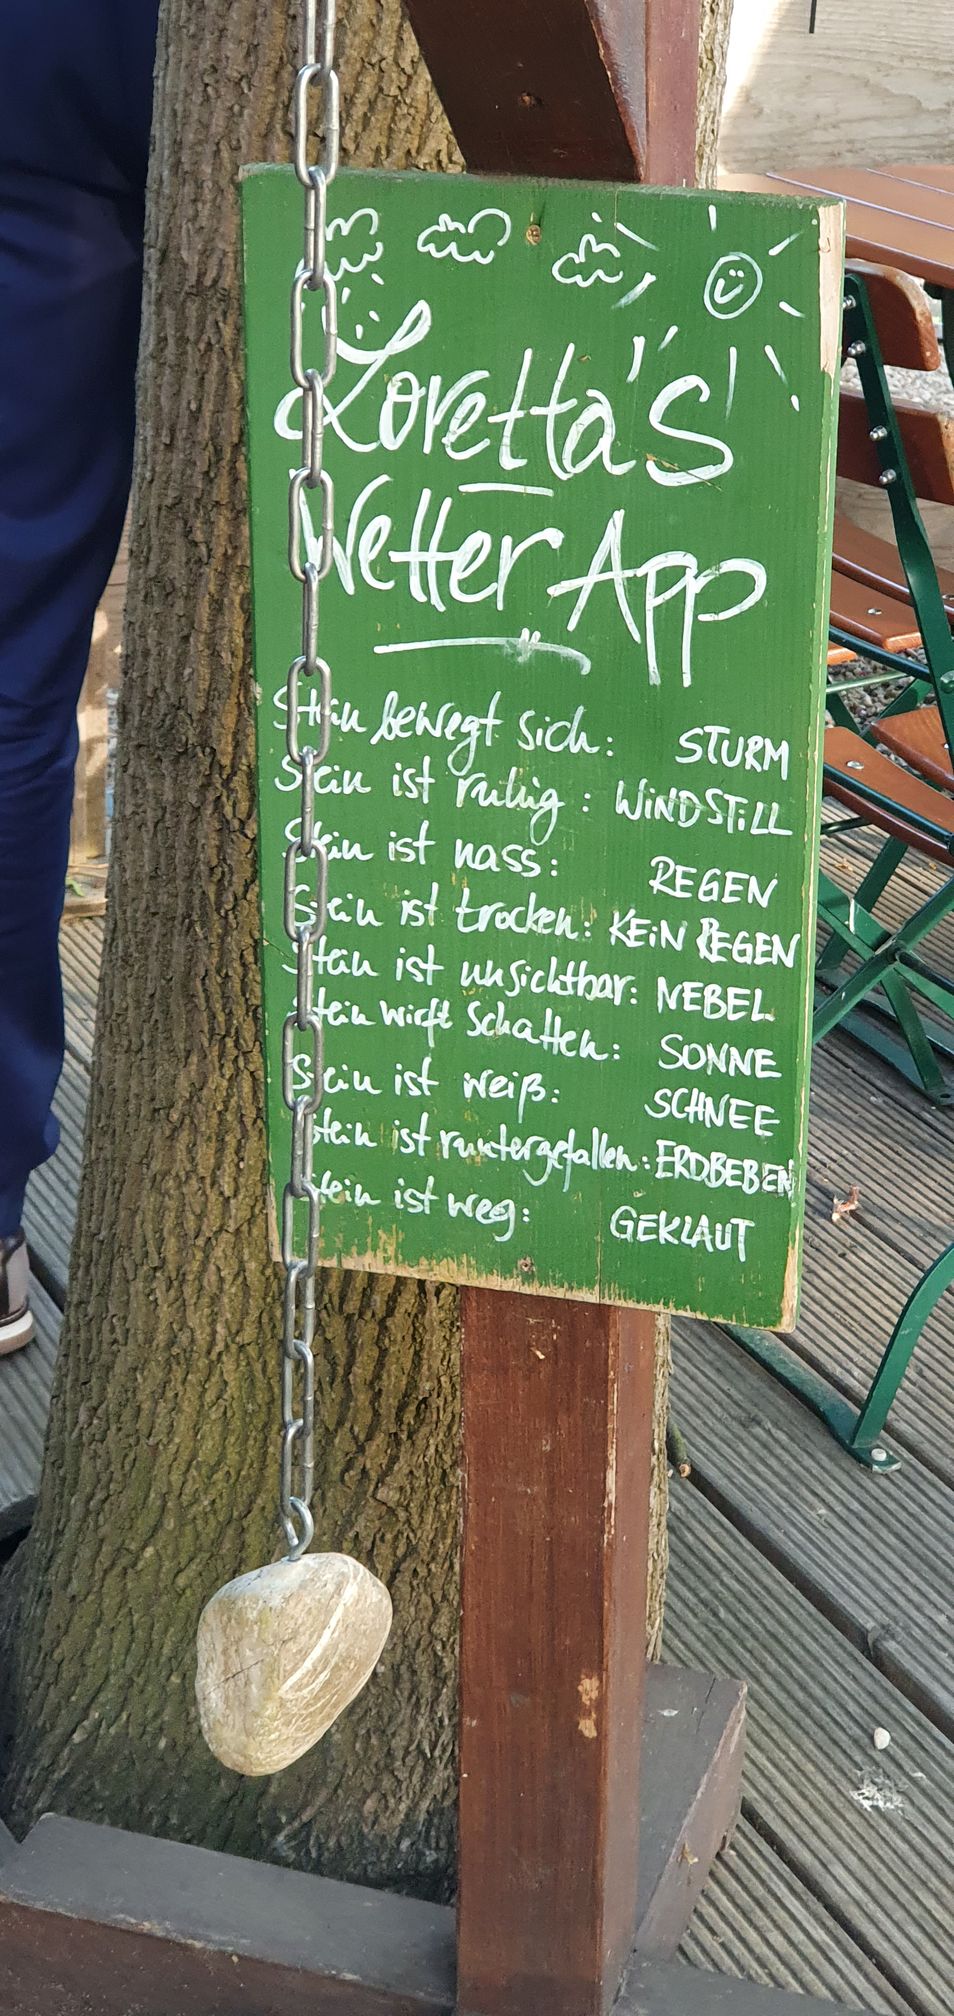 Loretta's
Wetter App
Stein bewegt sich: STURM
Stein ist ruhig: WINDSTILL
Stein ist nass: REGEN
Stein ist trocken: KEIN REGEN
Stein ist unsichtbar: NEBEL
Stein wirft Schatten: SONNE
Stein ist weiß: SCHNEE
Stein ist runtergefallen: ERDBEBEN
Stein ist weg: GEKLAUT